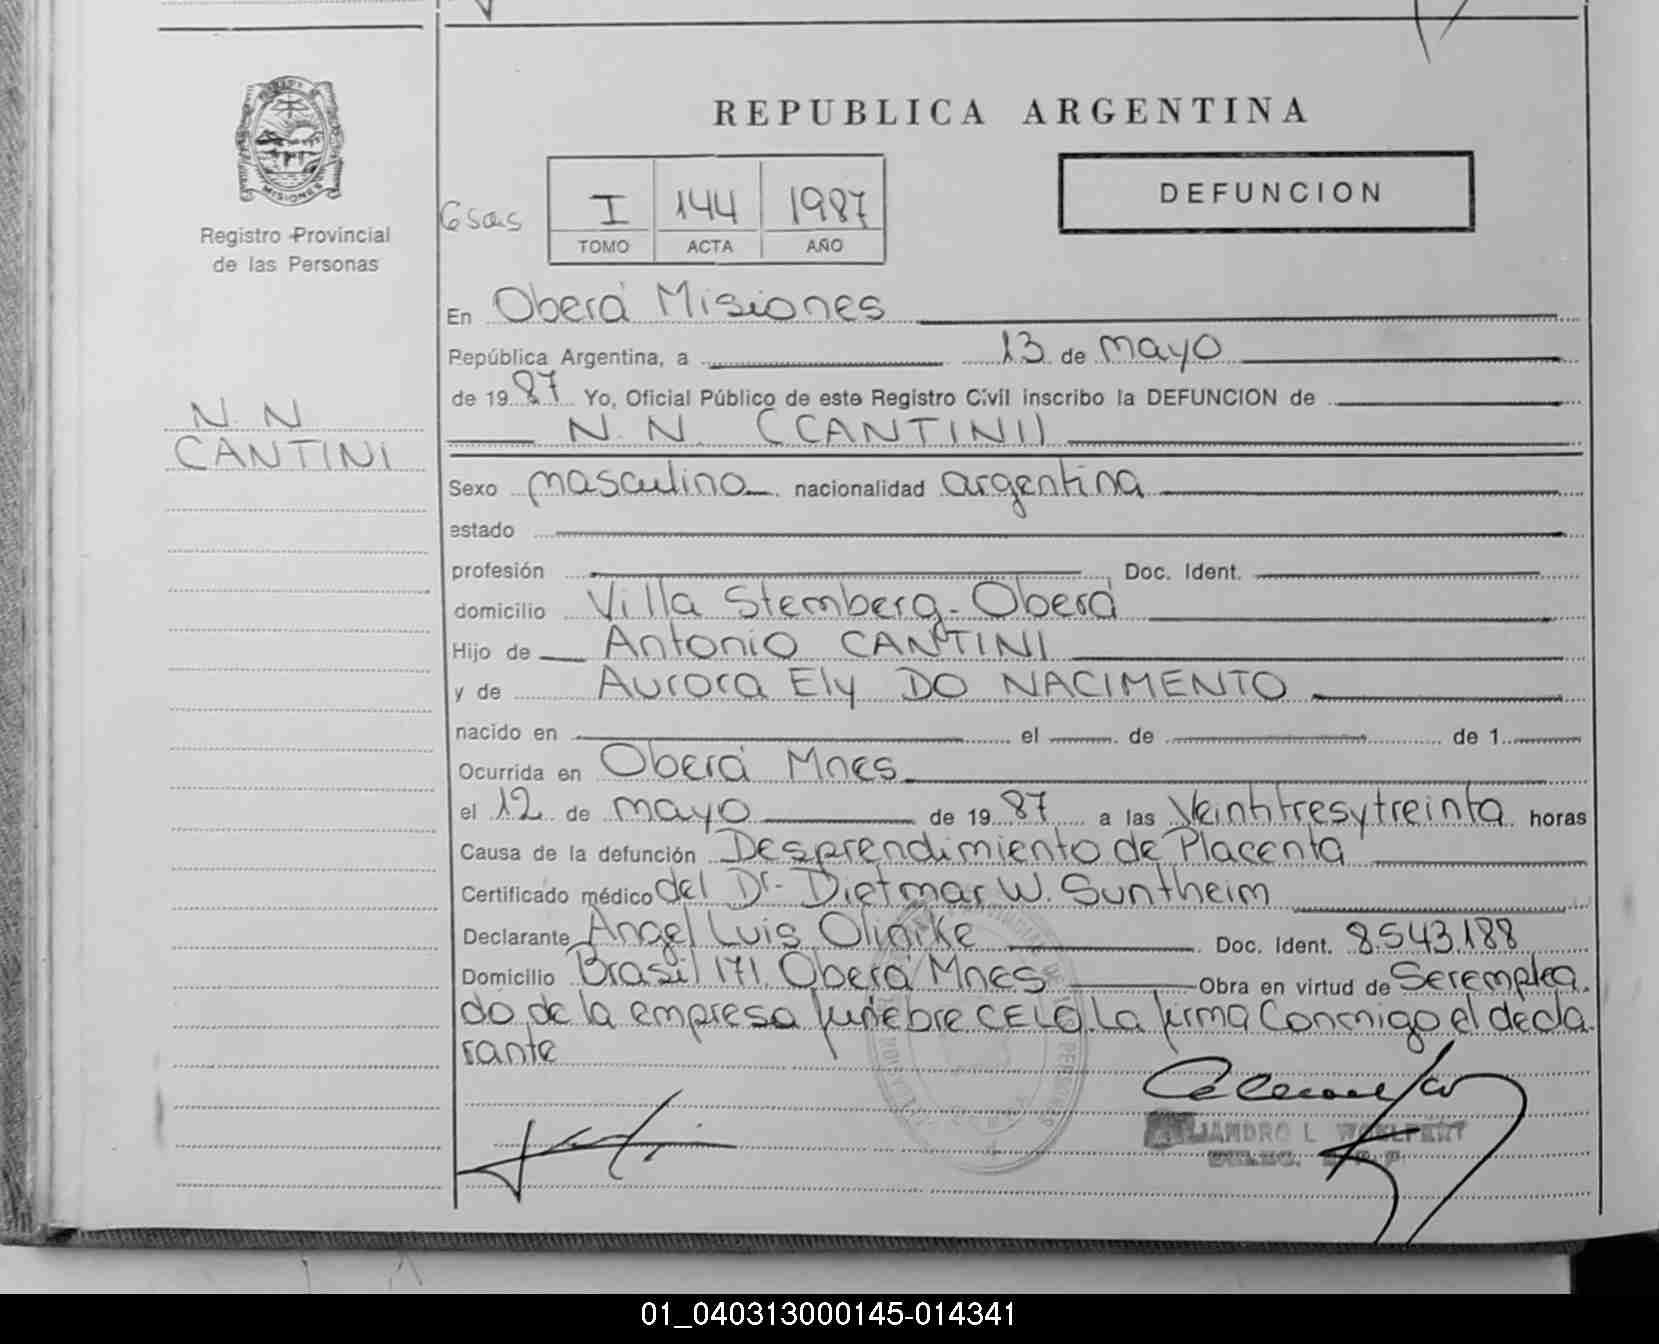 MISIONES
Registro Provincial
de las Personas
N. N
CANTINI
REPUBLICA ARGENTINA
I 144 1987
TOMO ACTA AÑO
DEFUNCION
En Oberá Misiones
República Argentina, a 13 de mayo
de 1987 Yo, Oficial Público de este Registro Civil inscribo la DEFUNCION de
N. N. (CANTINI)
Sexo masculino nacionalidad argentina
estado
profesión Doc. Ident.
domicilio Villa Stemberg - Oberá
Hijo de Antonio CANTINI
y de Aurora Ely DO NACIMENTO
nacido en el de de 1
Ocurrida en Oberá Mnes
el 12 de mayo de 1987 a las Veintitres y treinta horas
Causa de la defunción Desprendimiento de Placenta
Certificado médico del Dr. Dietmar W. Suntheim
Declarante Angel Luis Doc. Ident. 8.543.188
Domicilio Brasil 171 Oberá Mnes Obra en virtud de Ser emplea
do de la empresa funebre CELO. La firma Conmigo el decla
rante
01_040313000145-014341